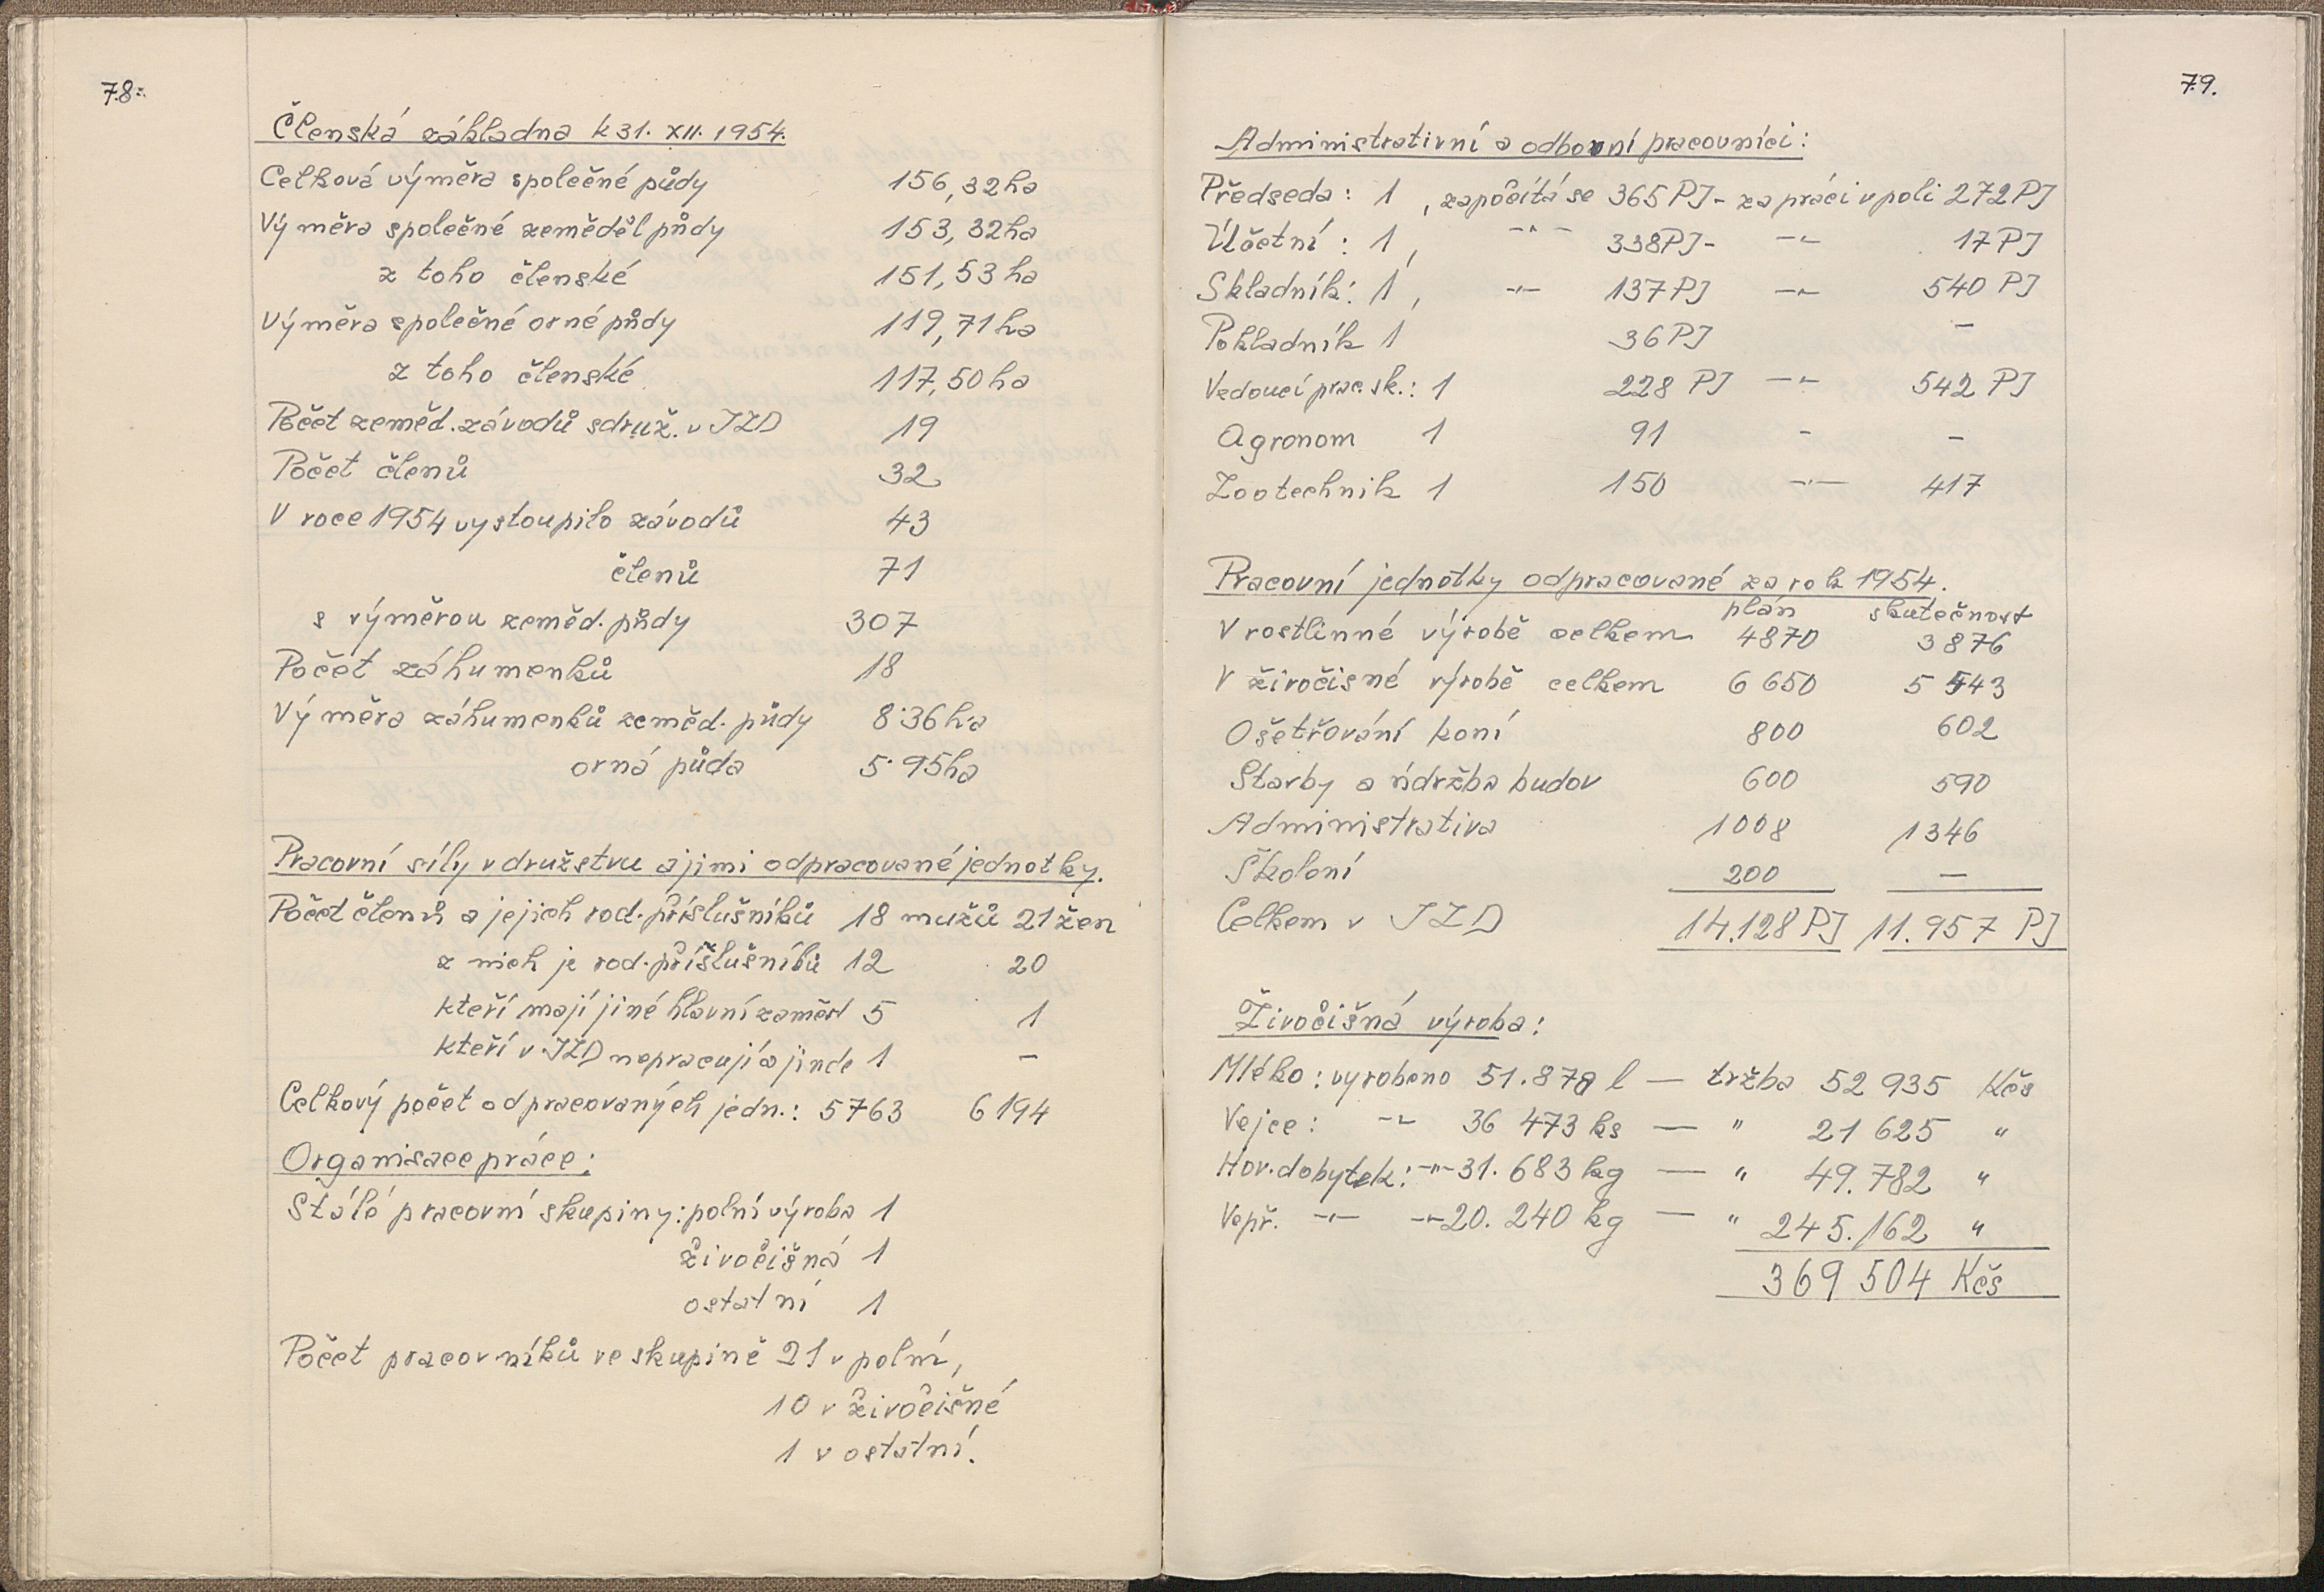 78.
Členská základna k 31. XII. 1954.
Celková výměra společné půdy 156,32 ha
Výměra společné zeměděl půdy 153,32 ha
z toho členské 151,53 ha
Výměra společné orné půdy 119,71 ha
z toho členské 117,50 ha
Počet zeměd. závodů sdruž. v JZD 19
Počet členů 32
V roce 1954 vystoupilo závodů 43
členů 71
s výměrou zeměd. půdy 307
Počet záhumenků 18
Výměra záhumenků zeměd. půdy 8·36 ha
orná půda 5·95 ha
Pracovní síly v družstvu a jimi odpracované jednotky.
Počet členů a jejich rod. příslušníků 18 mužů 21 žen
z nich je rod. příslušníků 12 20
kteří mají jiné hlavní zaměst 5 1
kteří v JZD nepracují a jinde 1 -
Celkový počet odpracovaných jedn.: 5763 6194
Organisace práce:
Stálé pracovní skupiny: polní výroba 1
živočišná 1
ostatní 1
Počet pracovníků ve skupině 21 v polní,
10 v živočišné
1 v ostatní.
79.
Administrativní a odborní pracovníci:
Předseda: 1, započítá se 365 PJ - za práci v poli 272 PJ
Účetní: 1, -"- 338 PJ - -"- 17 PJ
Skladník: 1, -"- 137 PJ -"- 540 PJ
Pokladník 1 36 PJ -
Vedoucí prac. sk.: 1 228 PJ -"- 542 PJ
Agronom 1 91 - -
Zootechnik 1 150 -"- 417
Pracovní jednotky odpracované za rok 1954.
plán skutečnost
V rostlinné výrobě celkem 4870 3876
V živočisné výrobě celkem 6 650 5 543
Ošetřování koní 800 602
Stavby a údržba budov 600 590
Administrativa 1008 1346
Školení 200 —
Celkem v JZD 14.128 PJ 11.957 PJ
Živočišná výroba:
Mléko: vyrobeno 51.878 l — tržba 52 935 Kčs
Vejce: -"- 36 473 ks — " 21 625 "
Hov. dobytek: -"- 31.683 kg — " 49.782 "
Vepř. -"- -"- 20.240 kg — " 245.162 "
369 504 Kčs